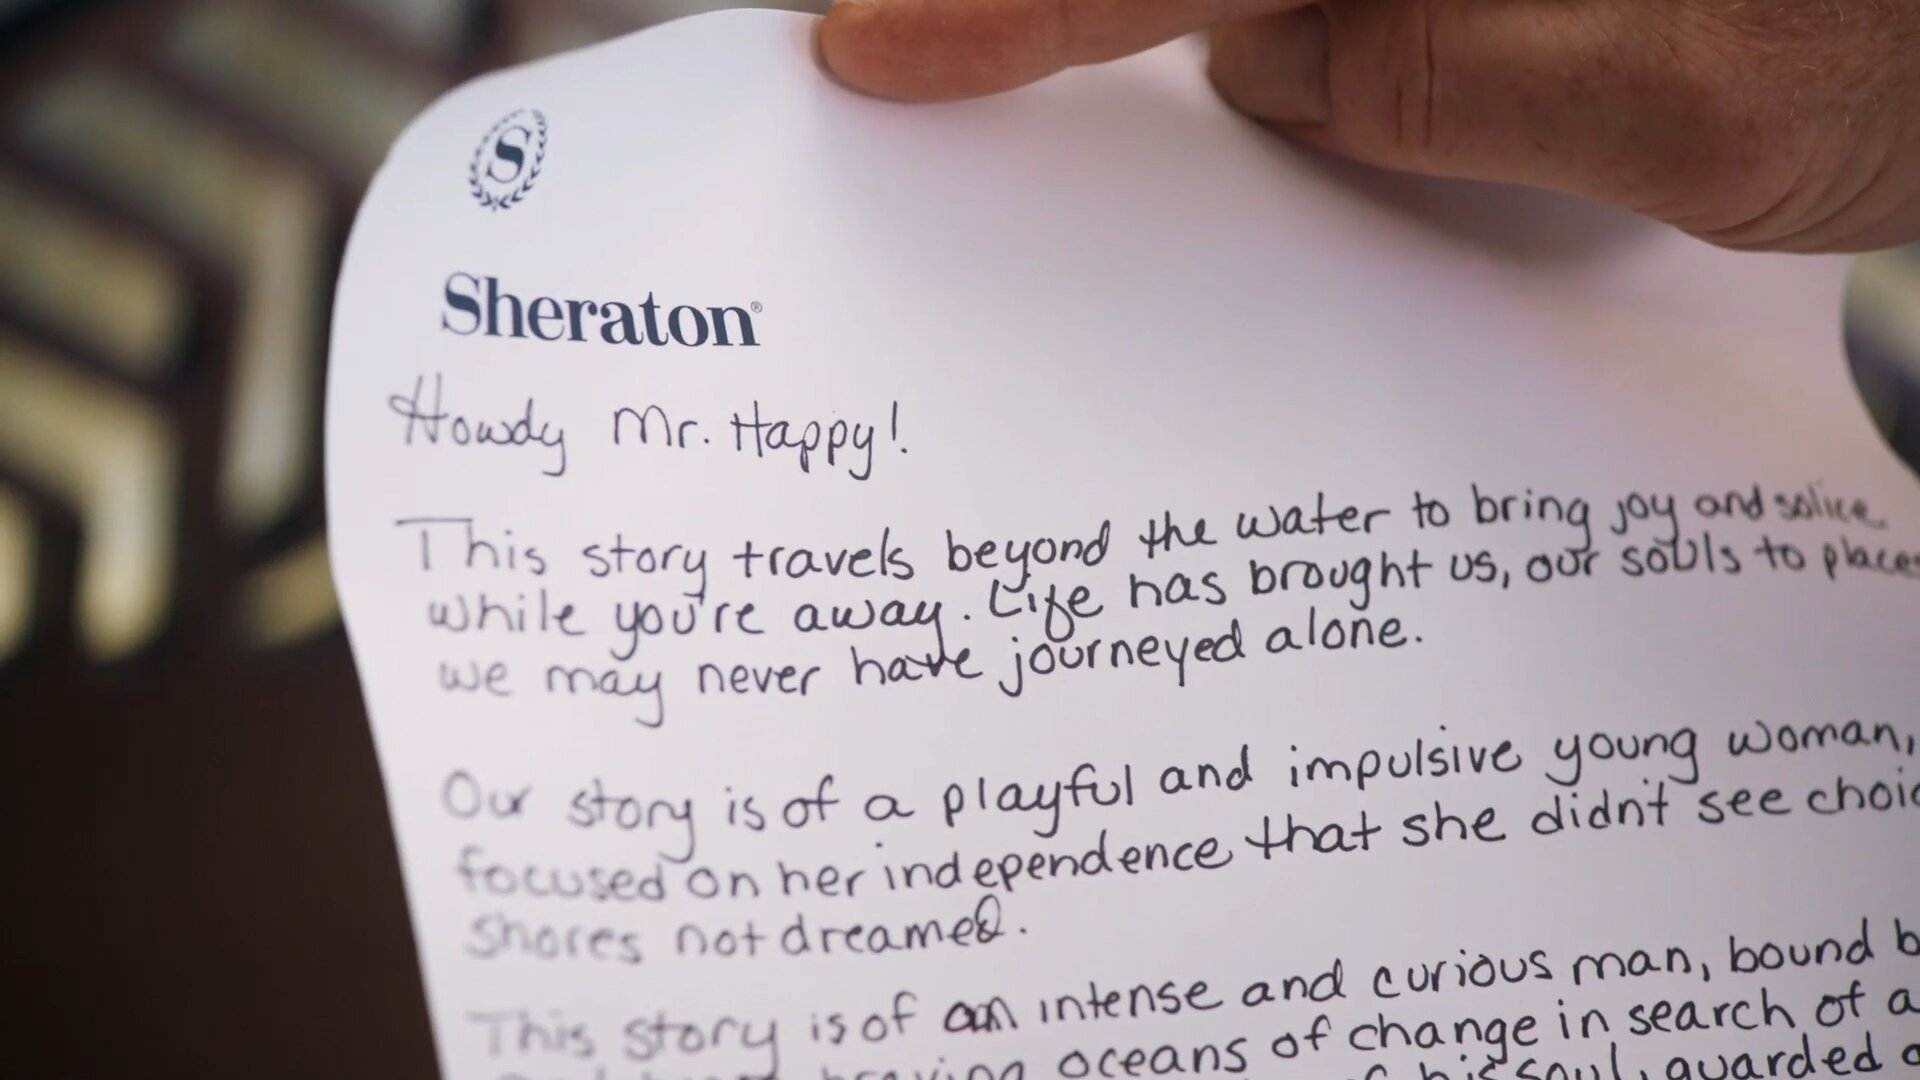 S
Sheraton®
Howdy Mr. Happy!
This story travels beyond the water to bring joy and solice
while you're away. Life has brought us, our souls to places
we may never have journeyed alone.
Our story is of a playful and impulsive young woman,
focused on her independence that she didn't see
shores not dreamed.
This story is of an intense and curious man, bound
braving oceans of change in search of a
his soul, guarded